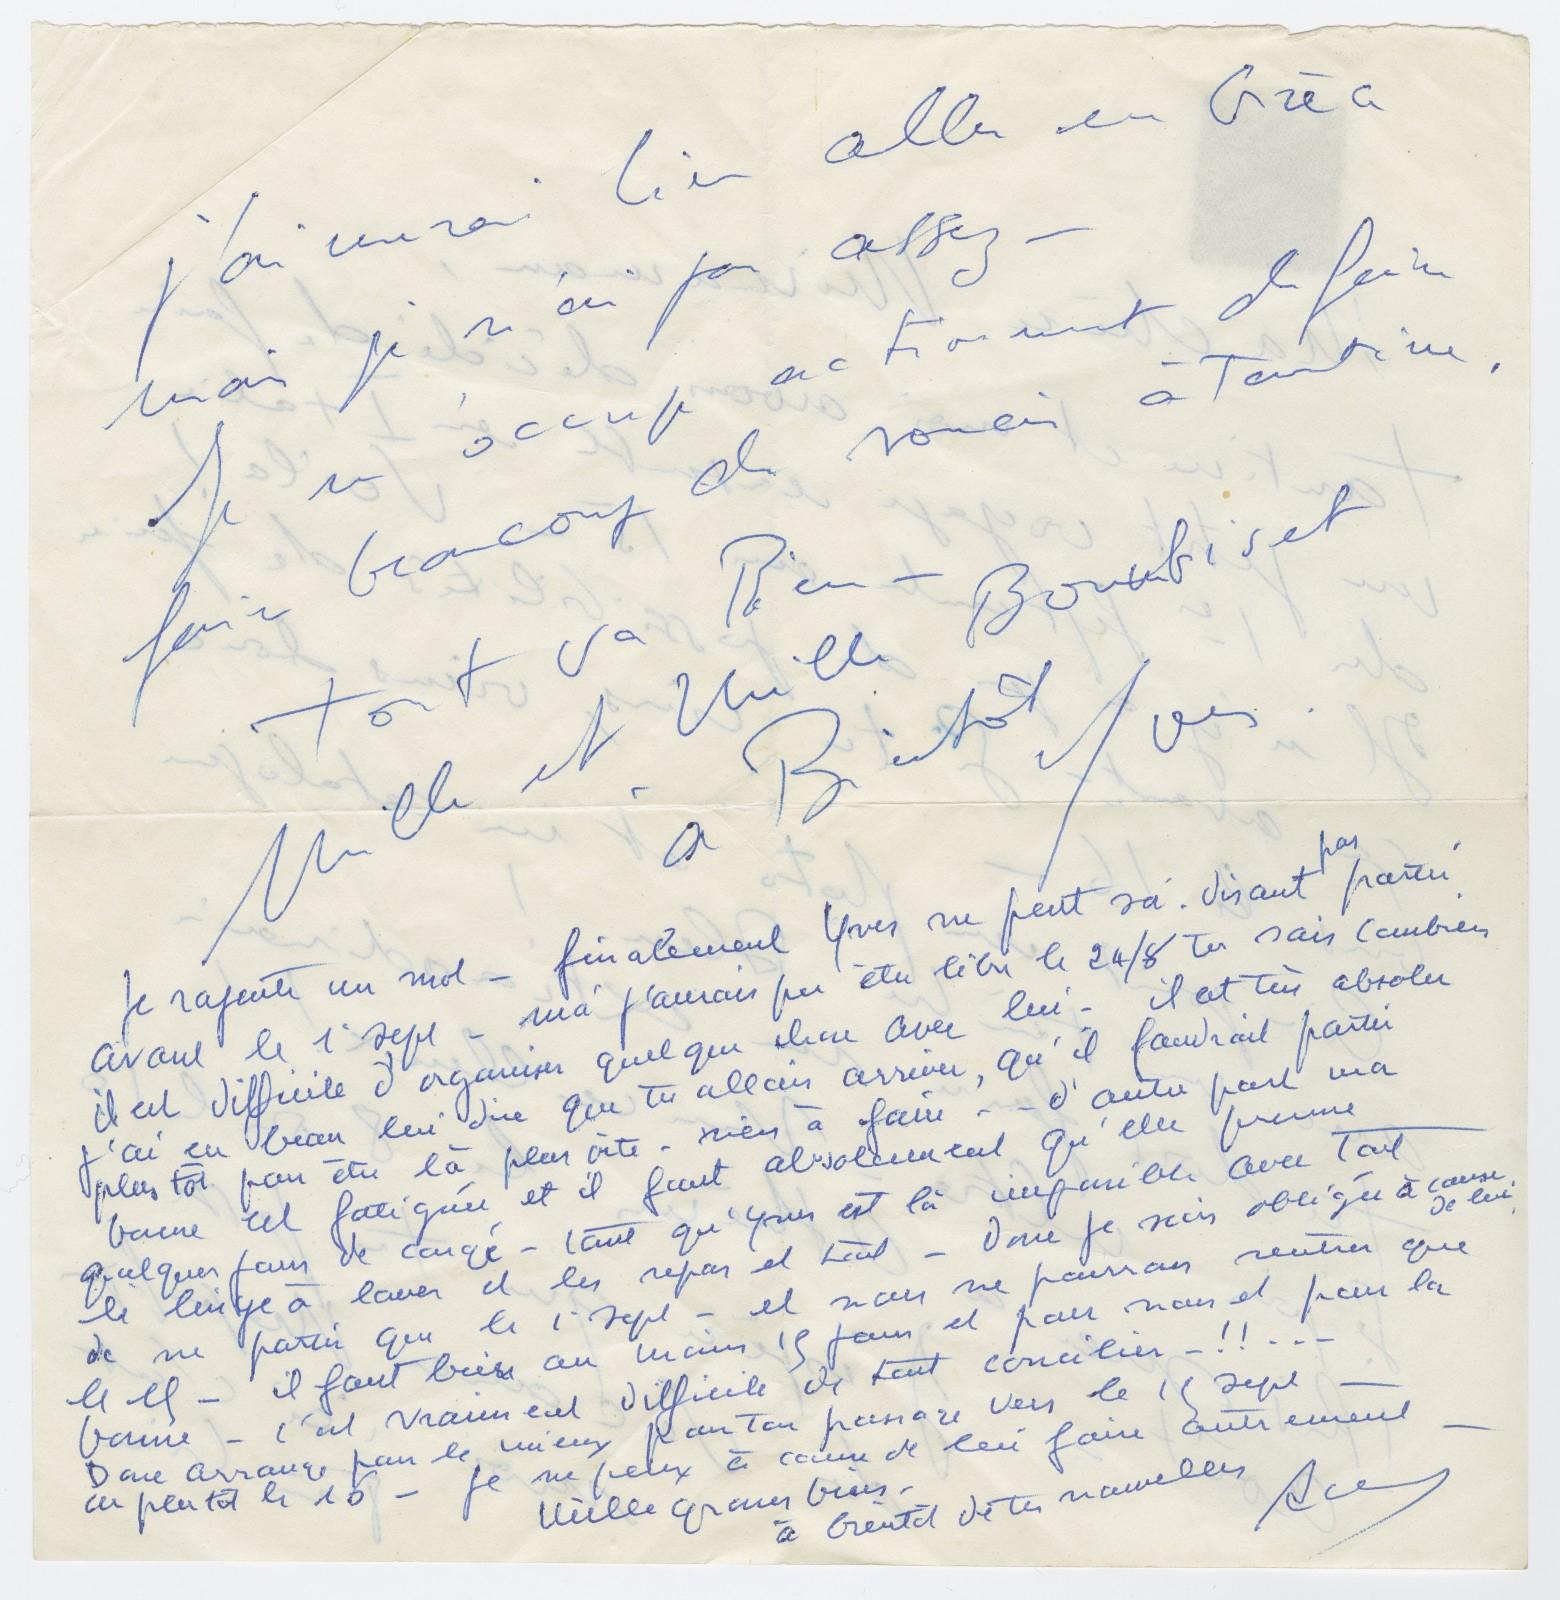 j'aimerai bien aller en Grèce
mais je n'ai pas assez –
Je m'occupe actionment de faire
faire beaucoup de soucis à Tantine.
tout va Bien – Boumbiset
Mille et Mille
à Bientôt Yves.
pas
Je rajoute un mot – finalement Yves ne peut soi-disant partir
avant le 1 sept – moi j'aurais pu être libre le 24/8 tu sais combien
il est difficile d'organiser quelque chose avec lui – il est très absolu
j'ai eu beau lui dire que tu allais arriver, qu'il faudrait partir
plus tôt pour être là plus vite – rien à faire – – d'autre part ma
bonne est fatiguée et il faut absolument qu'elle prenne
quelques jours de congé – tant qu'Yves est là impossible avec tout
le linge à laver et les repas et tout – Donc je suis obligée à cause de lui
de ne partir que le 1 sept – et nous ne pourrons rentrer que
le 15 – il faut bien au moins 15 jours et pour nous et pour la
bonne – c'est vraiment difficile de tout concilier – !! - - -
Donc arrange pour le mieux pour ton passage vers le 15 sept –
ou plutôt le 16 – Je ne peux à cause de lui faire autrement –
Mille gros bises.
à bientôt de tes nouvelles